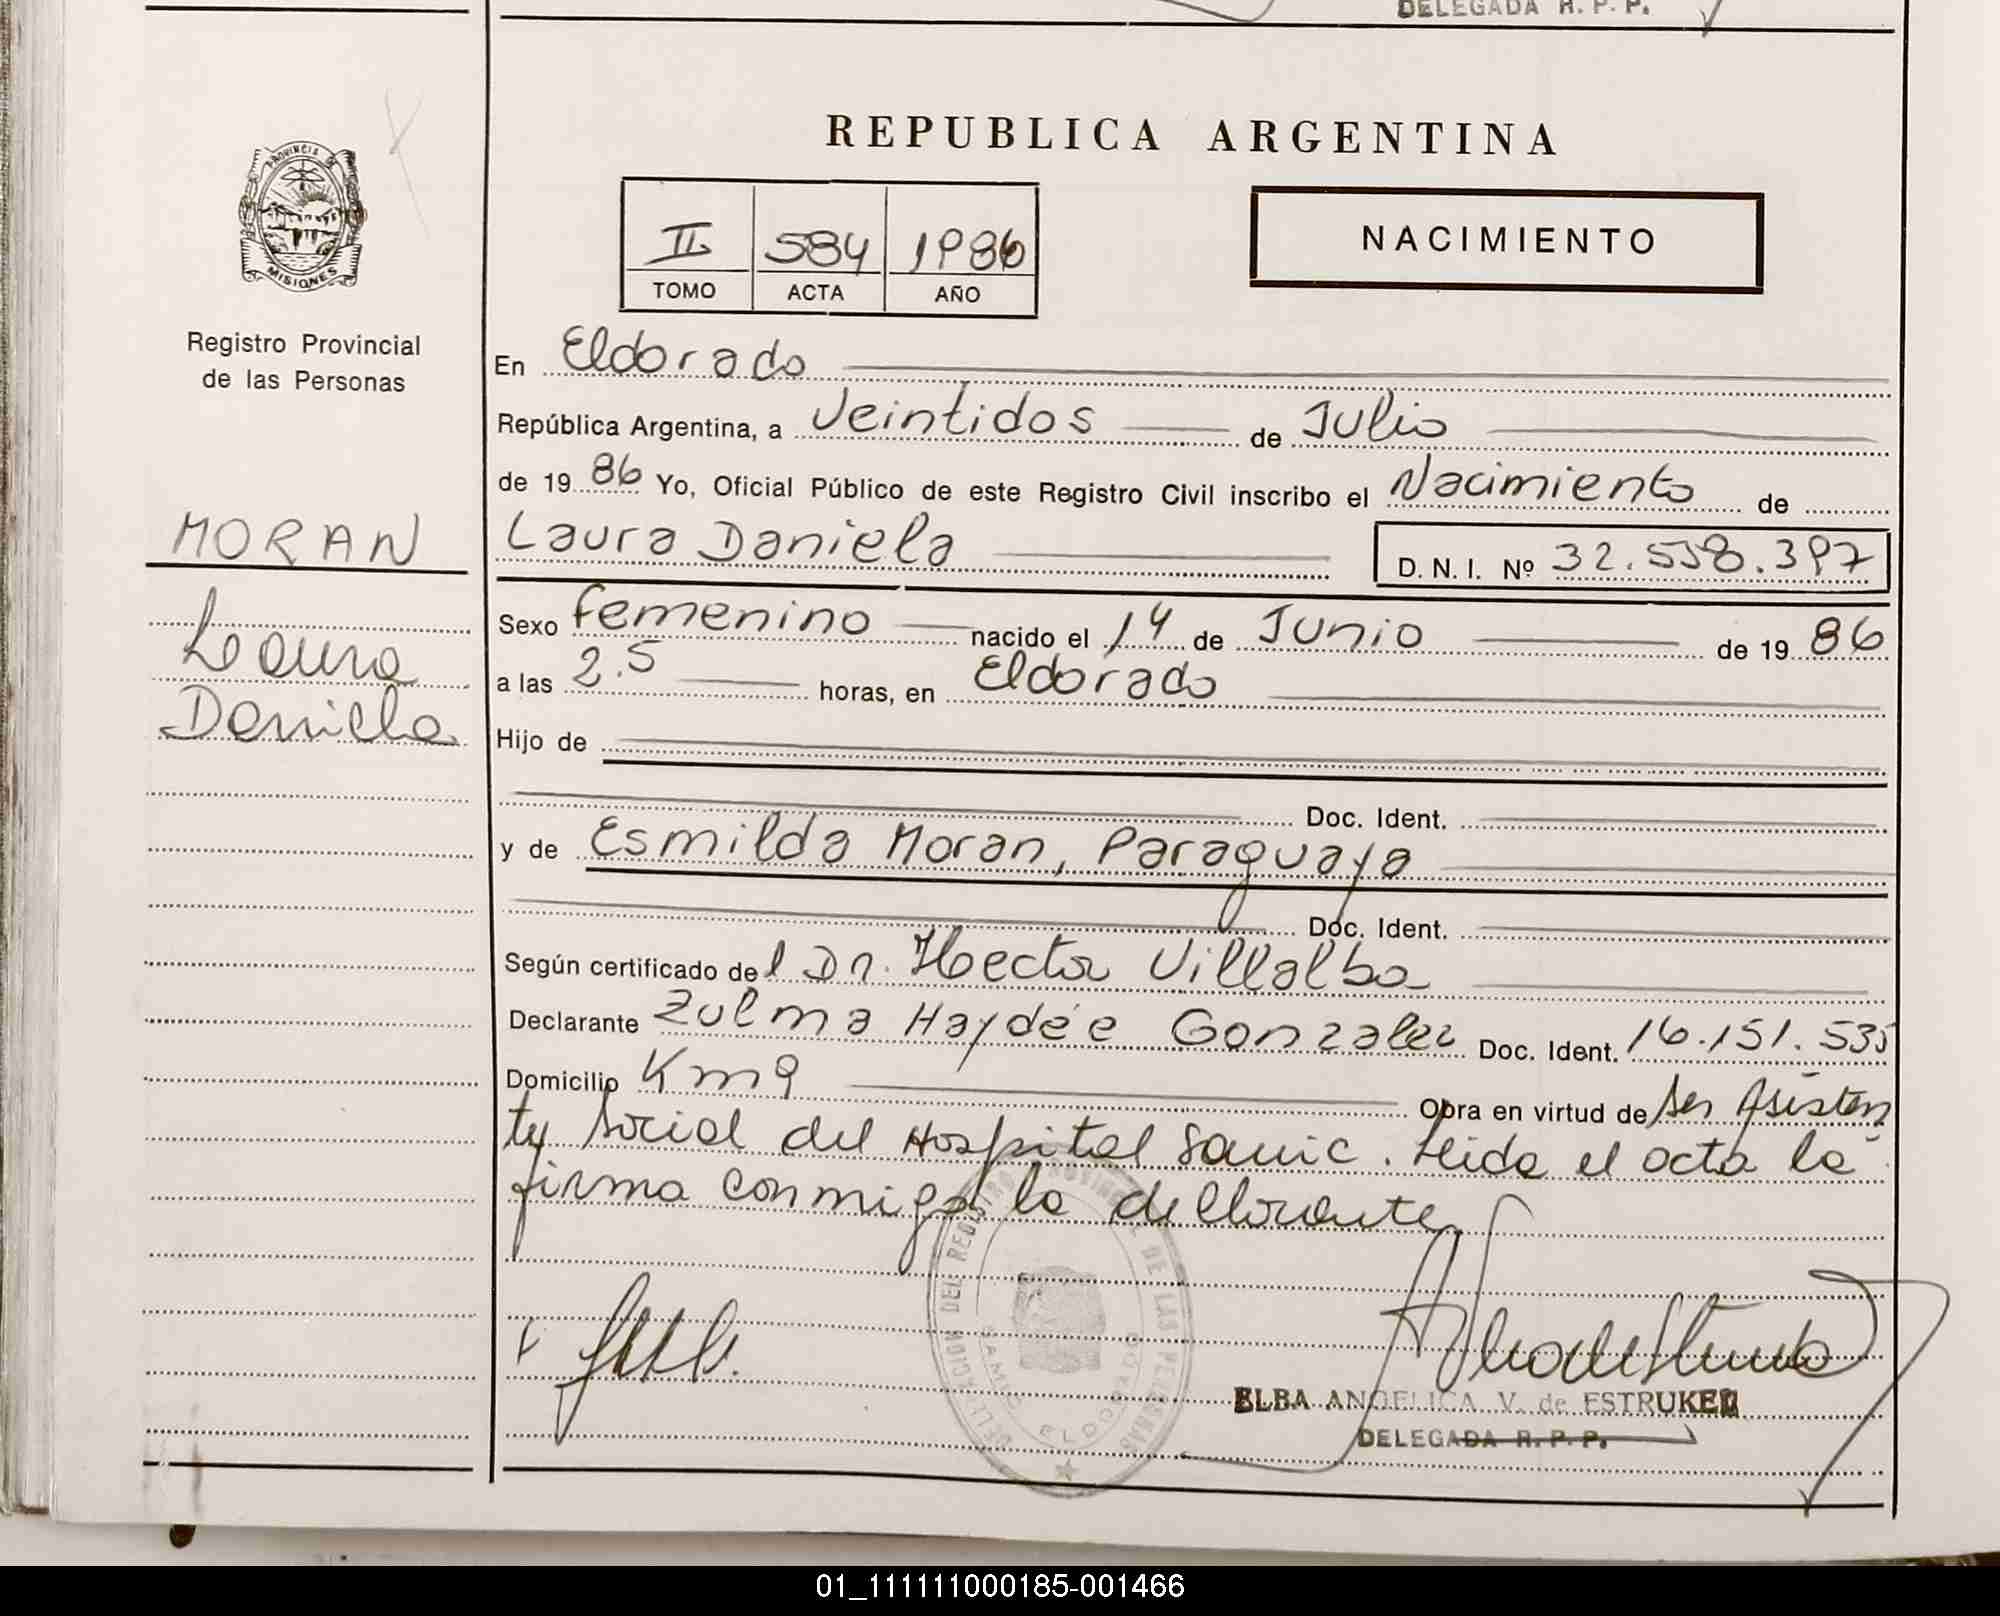 DELEGADA R. P. P.
PROVINCIA DE
MISIONES
Registro Provincial
de las Personas
MORAN
Laura
Daniela
REPUBLICA ARGENTINA
II 584 1986
TOMO ACTA AÑO
NACIMIENTO
En Eldorado
República Argentina, a Veintidos de Julio
de 19 86 Yo, Oficial Público de este Registro Civil inscribo el Nacimiento de
Laura Daniela D. N. I. Nº 32.558.397
Sexo femenino nacido el 14 de Junio de 19 86
a las 2.5 horas, en Eldorado
Hijo de
Doc. Ident.
y de Esmilda Moran, Paraguaya
Doc. Ident.
Según certificado del Dr. Hector Villalba
Declarante Zulma Haydée Gonzalez Doc. Ident. 16.151.535
Domicilio Km 9 Obra en virtud de ser Asisten
te Social del Hospital Samic. Leida el acta la
firma conmigo la declarante
DELEGACION DEL REGISTRO PROVINCIAL DE LAS PERSONAS
ELDORADO
ELBA ANGELICA V. de ESTRUKEL
DELEGADA R. P. P.
01_111111000185-001466